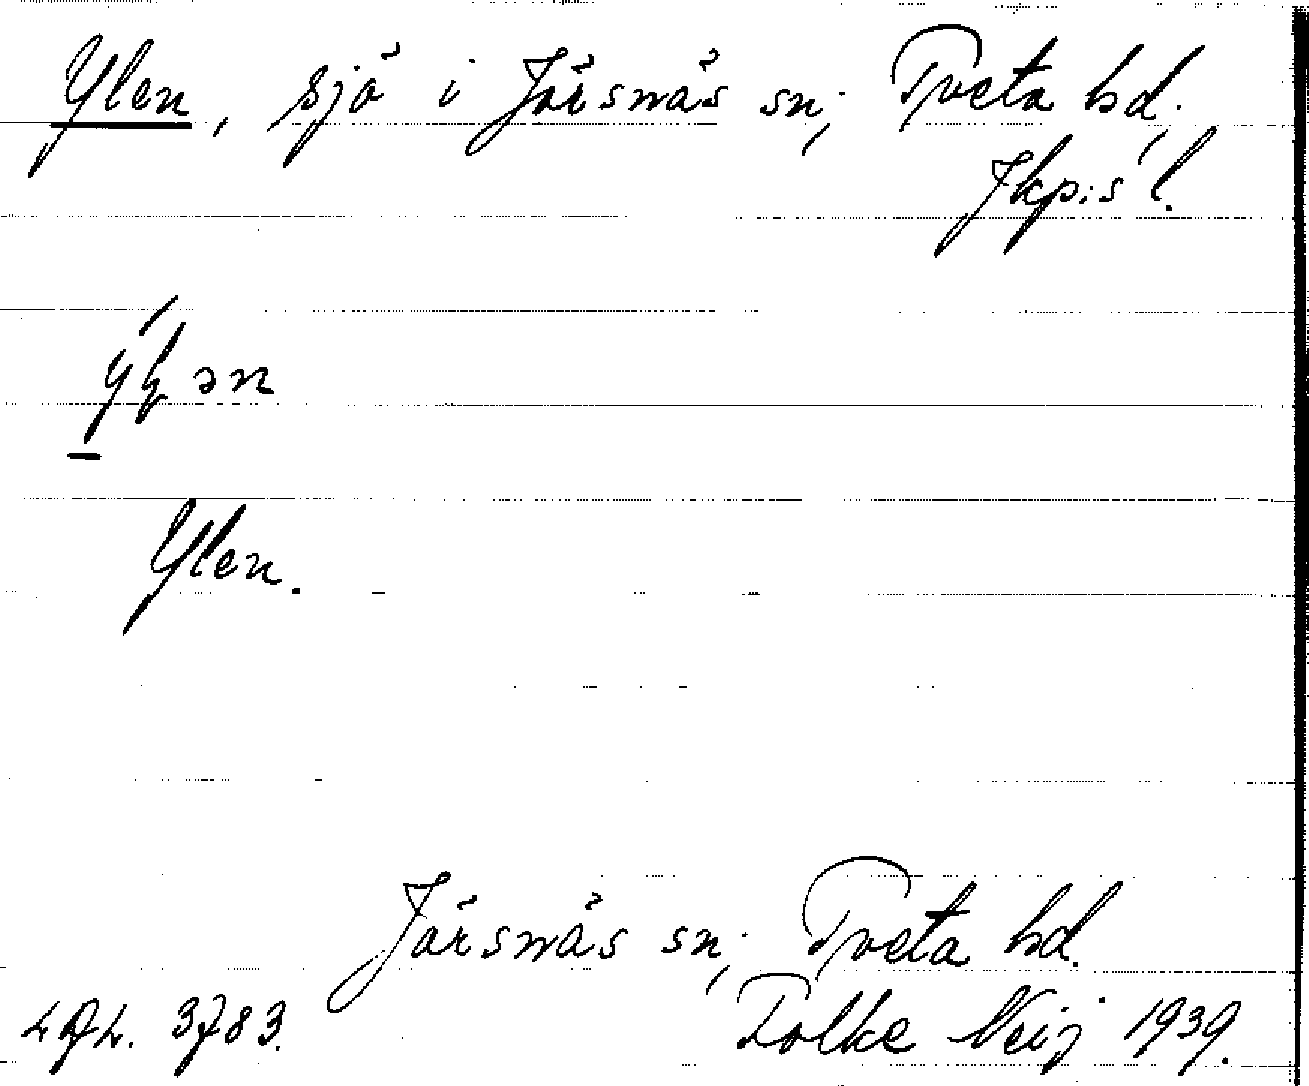 Ylen, sjö i Järsnäs sn; Tveta hd,
Jkp:s l.
Ylen.
Järsnäs sn; Tveta hd.
3783. Folke Neij 1939.